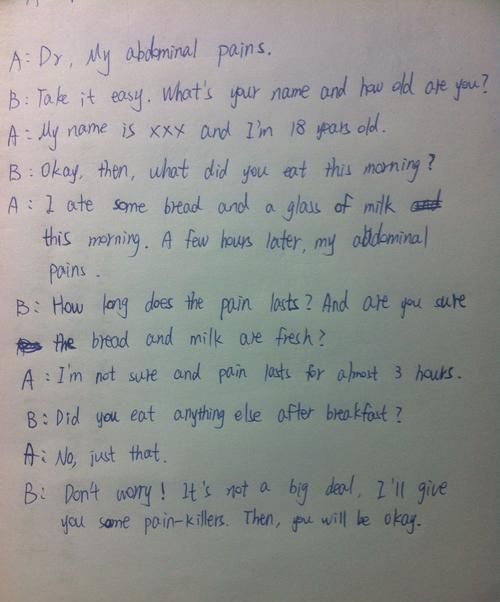 A: Dr, My abdominal pains.
B: Take it easy. What's your name and how old are you?
A: My name is xxx and I'm 18 years old.
B: Okay, then, what did you eat this morning?
A: I ate some bread and a glass of milk and
this morning. A few hours later, my abdominal
pains.
B: How long does the pain lasts? And are you sure
the bread and milk are fresh?
A: I'm not sure and pain lasts for almost 3 hours.
B: Did you eat anything else after breakfast?
A: No, just that.
B: Don't worry! It's not a big deal, I'll give
you some pain-killers. Then, you will be okay.